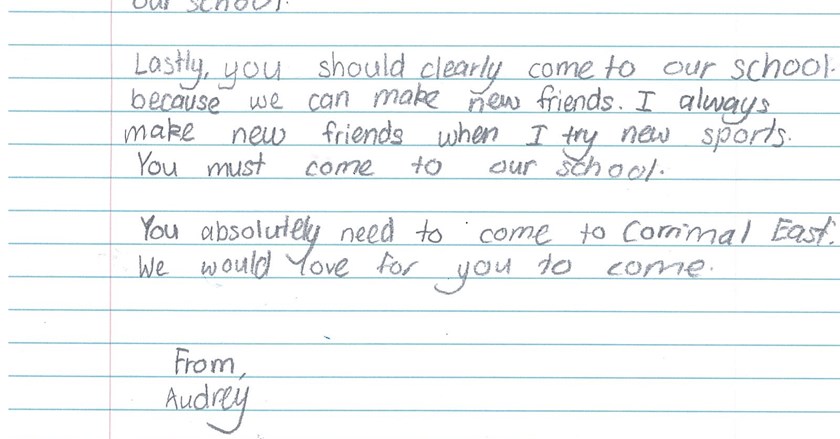 our school.
Lastly, you should clearly come to our school.
because we can make new friends. I always
make new friends when I try new sports.
You must come to our school.
You absolutely need to come to Corrimal East.
We would love for you to come.
From,
Audrey